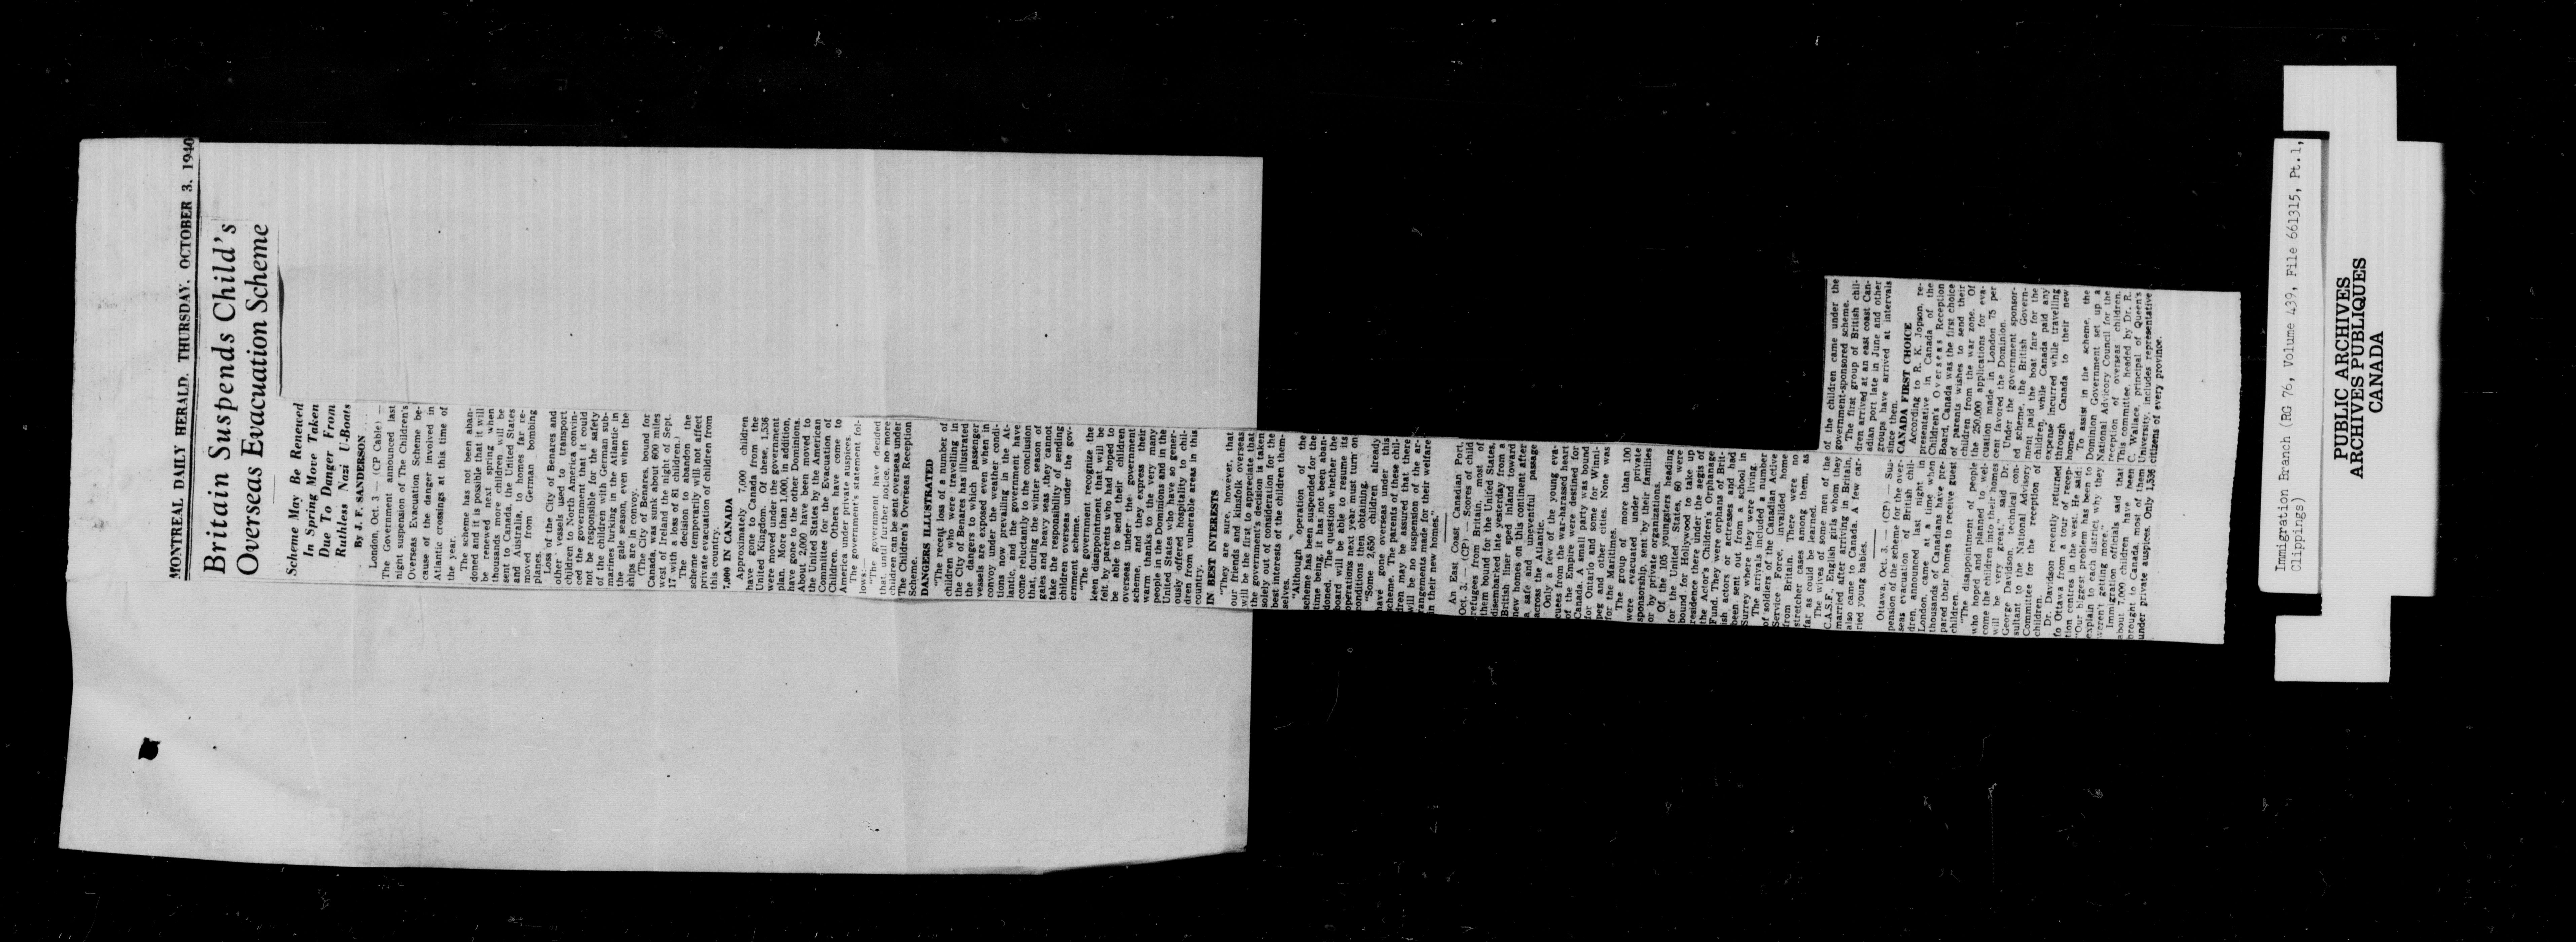 MONTREAL DAILY HERALD, THURSDAY, OCTOBER 3, 1940
Britain Suspends Child's
Overseas Evacuation Scheme
Scheme May Be Renewed
In Spring Move Taken
Due To Danger From
Ruthless Nazi U-Boats
By J. F. SANDERSON
London, Oct. 3 — (CP Cable) —
The Government announced last
night suspension of The Children's
Overseas Evacuation Scheme be-
cause of the danger involved in
Atlantic crossings at this time of
the year.
The scheme has not been aban-
doned and it is possible that it will
be renewed next spring when
thousands more children will be
sent to Canada, the United States
and Australia, to homes far re-
moved from German bombing
planes.
Loss of the City of Benares and
other vessels used to transport
children to North America convin-
ced the government that it could
not be responsible for the safety
of the children with German sub-
marines lurking in the Atlantic in
the gale season, even when the
ships are in convoy.
(The City of Benares, bound for
Canada, was sunk about 600 miles
west of Ireland the night of Sept.
17 with a loss of 81 children.)
The decision to abandon the
scheme temporarily will not affect
private evacuation of children from
this country.
7,000 IN CANADA
Approximately 7,000 children
have gone to Canada from the
United Kingdom. Of these, 1,536
were moved under the government
plan. More than 1,000, in addition,
have gone to the other Dominions.
About 2,000 have been moved to
the United States by the American
Committee for the Evacuation of
Children. Others have come to
America under private auspices.
The government's statement fol-
lows:
"The government have decided
that until further notice, no more
children can be sent overseas under
The Children's Overseas Reception
Scheme.
DANGERS ILLUSTRATED
"The recent loss of a number of
children who were travelling in
the City of Benares has illustrated
the dangers to which passenger
vessels are exposed even when in
convoy under the weather condi-
tions now prevailing in the At-
lantic, and the government have
come reluctantly to the conclusion
that, during the winter season of
gales and heavy seas, they cannot
take the responsibility of sending
children overseas under the gov-
ernment scheme.
"The government recognize the
keen disappointment that will be
felt by parents who had hoped to
be able to send their children
overseas under the government
scheme, and they express their
warm thanks to the very many
people in the Dominions and the
United States who have so gener-
ously offered hospitality to chil-
dren from vulnerable areas in this
country.
IN BEST INTERESTS
"They are sure, however, that
our friends and kinsfolk overseas
will be the first to appreciate that
the government's decision is taken
solely out of consideration for the
best interests of the children them-
selves.
"Although operation of the
scheme has been suspended for the
time being, it has not been aban-
doned. The question whether the
board will be able to resume its
operations next year must turn on
conditions then obtaining.
"Some 2,650 children already
have gone overseas under the
scheme. The parents of these chil-
dren may be assured that there
will be no relaxation of the ar-
rangements made for their welfare
in their new homes."
An East Coast Canadian Port,
Oct. 3. — (CP) — Scores of child
refugees from Britain, most of
them bound for the United States,
disembarked late yesterday from a
British liner and sped inland toward
new homes on this continent after
a safe and uneventful passage
across the Atlantic.
Only a few of the young eva-
cuees from the war-harassed heart
of the Empire were destined for
Canada. A small party was bound
for Ontario and some for Winni-
peg and other cities. None was
for the Maritimes.
The group of more than 100
were evacuated under private
sponsorship, sent by their families
or by private organizations.
Of the 105 youngsters heading
for the United States, 60 were
bound for Hollywood to take up
residence there under the aegis of
the Actor's Children's Orphanage
Fund. They were orphans of Brit-
ish actors or actresses and had
been sent out from a school in
Surrey where they were living.
The arrivals included a number
of soldiers of the Canadian Active
Service Force, invalided home
from Britain. There were no
stretcher cases among them, as
far as could be learned.
The wives of some men of the
C.A.S.F., English girls whom they
married after arriving in Britain,
also came to Canada. A few car-
ried young babies.
Ottawa, Oct. 3. — (CP) — Sus-
pension of the scheme for the over-
seas evacuation of British chil-
dren, announced last night in
London, came at a time when
thousands of Canadians have pre-
pared their homes to receive guest
children.
"The disappointment of people
who hoped and planned to wel-
come the children into their homes
will be very great," said Dr.
George Davidson, technical con-
sultant to the National Advisory
Committee for the reception of
children.
Dr. Davidson recently returned
to Ottawa from a tour of recep-
tion centres in the west. He said:
"Our biggest problem has been to
explain to each district why they
weren't getting more."
Immigration officials said that
about 7,000 children have been
brought to Canada, most of them
under private auspices. Only 1,536
of the children came under the
government-sponsored scheme.
The first group of British chil-
dren arrived at an east coast Can-
adian port late in June and other
groups have arrived at intervals
since then.
CANADA FIRST CHOICE
According to R. K. Jopson, re-
presentative in Canada of the
Children's Overseas Reception
Board, Canada was the first choice
of parents wishes to send their
children from the war zone. Of
the 250,000 applications for eva-
cuation made in London 75 per
cent favored the Dominion.
Under the government sponsor-
ed scheme, the British Govern-
ment paid the boat fare for the
children, while Canada paid any
expense incurred while travelling
through Canada to their new
homes.
To assist in the scheme, the
Dominion Government set up a
National Advisory Council for the
reception of overseas children.
This committee, headed by Dr. R.
C. Wallace, principal of Queen's
University, includes representative
citizens of every province.
Immigration Branch (RG 76, Volume 439, File 661315, Pt.1,
Clippings)
PUBLIC ARCHIVES
ARCHIVES PUBLIQUES
CANADA